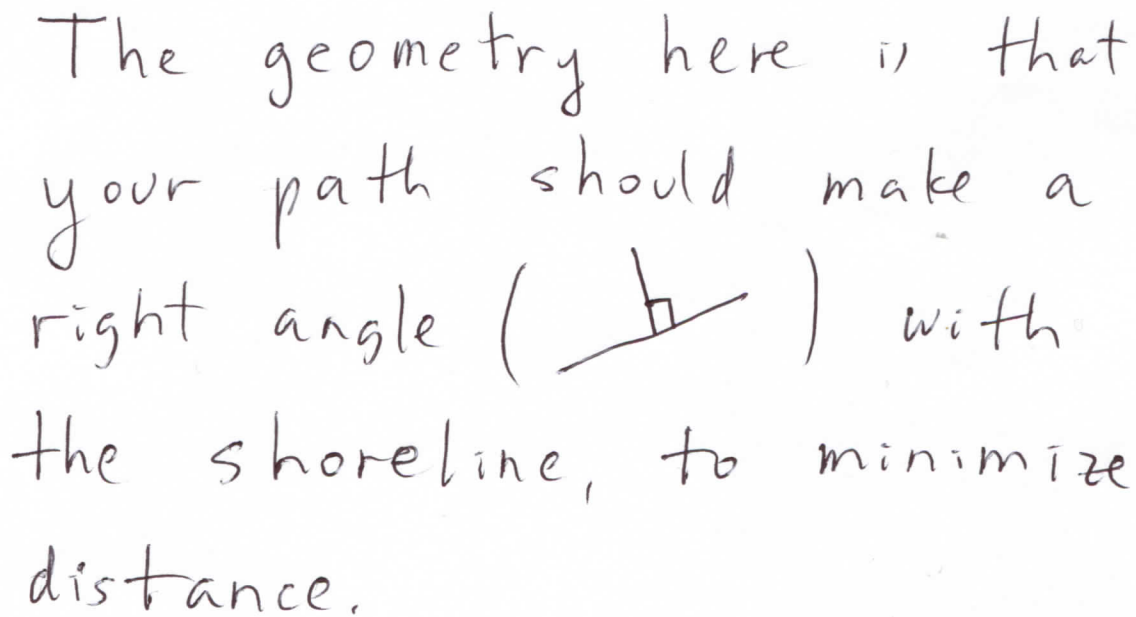 The geometry here is that
your path should make a
right angle ( ) with
the shoreline, to minimize
distance.